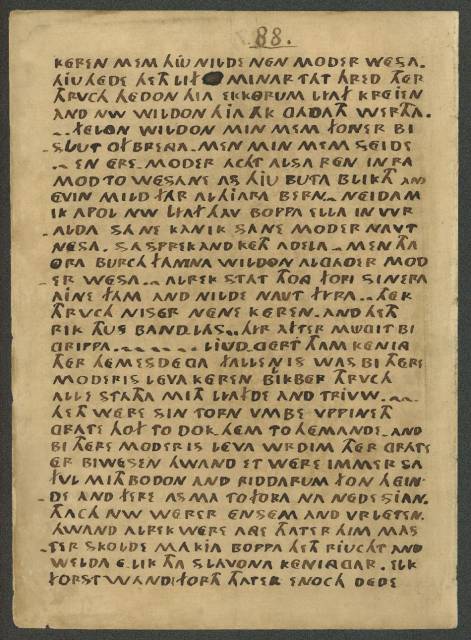 88.
KEREN MEM HIU NILDE NEN MODER WESA.
HIU HEDE HETH LIF MINAR THAT HRED THER
THRVCH HEDON HIA EKKORUM LIAF KREIEN
AND NW WILDON HIA AK GADATH WERTHA.
.. FELON WILDON MIN MEM FONER BI
SLUT OFBRENGA. MEN MIN MEM SEIDE
.. EN ERE MODER ACHT ALSA REN INRA
MOD TO WESANE AS HIU BUTA BLIKTH AND
EVIN MILD FAR ALHIARA BERN. NEIDAM
IK APOL NW LIAF HAV BOPPA ELLA IN WR
ALDA SA NE KAN IK SANE MODER NAVT
NESA. SA SPREK AND KETH ADELA. MEN THA
ORA BURCH FAMNA WILDON ALGADER MOD
ER WESA. ALREK STAT THONG FORI SINERA
AINE FAM AND NILDE NAVT FYRA. THER
THRVCH NIS ER NENE KEREN. AND HETH
RIK THUS BANDLAS. HYR AFTER MWGIT BI
GRIPPA. LIVDGERT THAM KENING
THER HEMESDEGA FALLEN IS WAS BI THERE
MODERIS LEVA KEREN BLIKBER THRVCH
ALLE STATHA MITH LIAFDE AND TRIVW.
HETH WERE SIN TORN VMBE VPPIN ETH
GRATE HOF TO DOKHEM TO HEMANDE. AND
BI THERE MODERIS LEVA WRDIM THER GRATE
ER BIWESEN HWAND ET WERE IMMER SA
FUL MITH BODON AND RIDDARUM FON HEIN
DE AND FERE AS MA TO FORA NA NEDE SIAN.
THACH NW WERER ENSEM AND VRLETEN.
HWAND ALREK WERE ANGE THATER HIM MAS
TER SKOLDE MAKIA BOPPA HETH RIUCHT AND
WELDA ELIK THA SLAVONA KENINGGAR. ELK
FORST WANDI FORTH THATER ENOCH DEDE